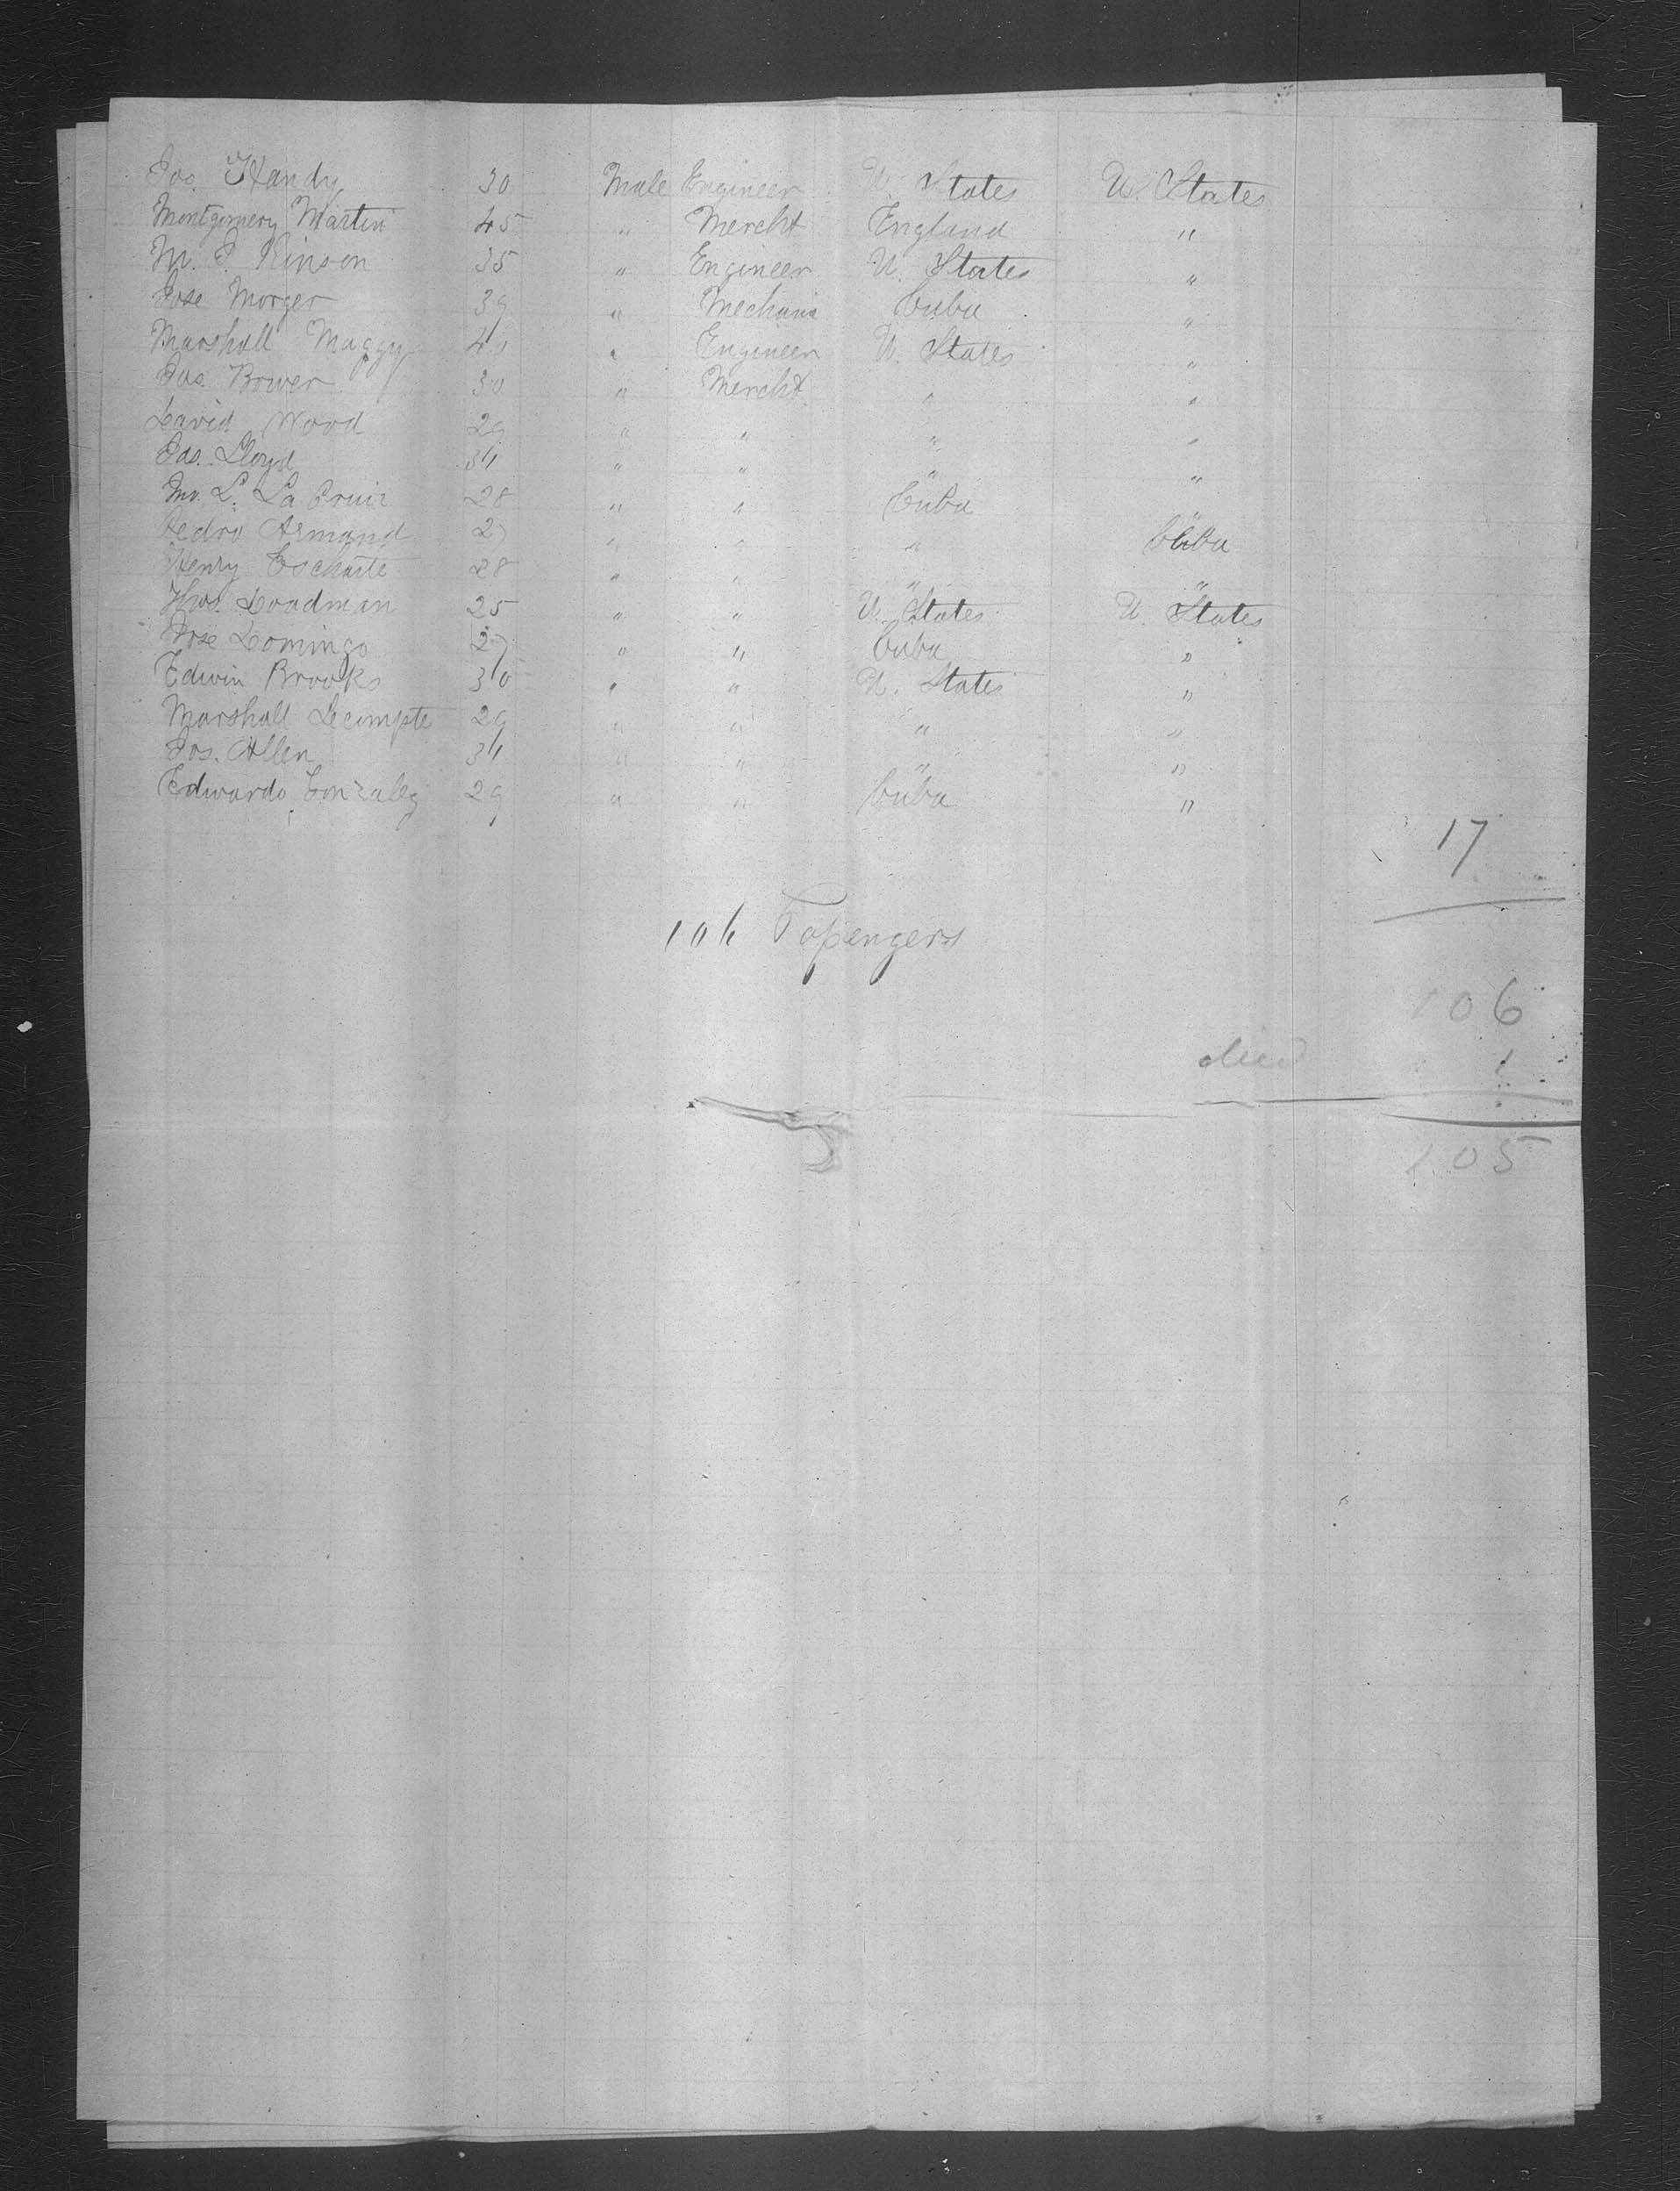 Jos. Handy 30 Male Engineer U. States U. States
Montgomery Martin 45 " Mercht England "
M. P. Kinson 35 " Engineer U. States "
Jose Morger 39 " Mechanic Cuba "
Marshall Maggy 40 " Engineer U. States "
Jas. Bower 30 " Mercht " "
David Wood 29 " " " "
Jas. Lloyd 34 " " " "
L. La 28 " " Cuba "
Pedro Armand 27 " " " Cuba
Henry 28 " " " "
Thos. Loadman 25 " " U. States U. States
Jose Domingo 27 " " Cuba "
Edwin Brooks 30 " " U. States "
Marshall Lecompte 29 " " " "
Jos. Allen 34 " " " "
Edwardo Gonzalez 29 " " Cuba "
17
106
106
died 1
105